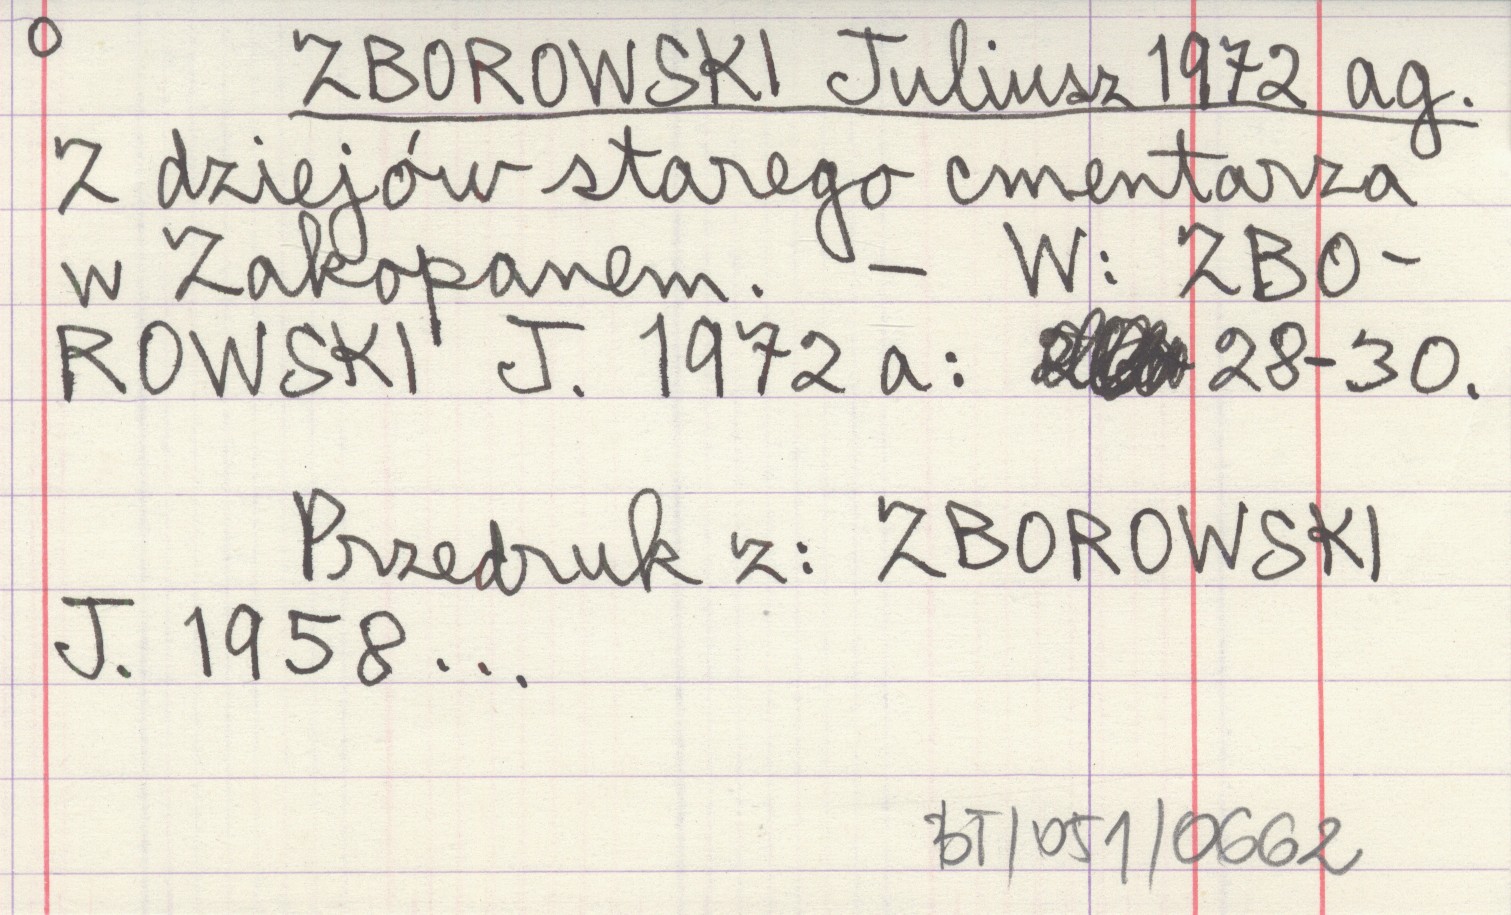 O ZBOROWSKI Juliusz 1972 ag.
Z dziejów starego cmentarza
w Zakopanem. – W: ZBO-
ROWSKI J. 1972 a: 28-30.
Przedruk z: ZBOROWSKI
J. 1958...
BT/051/0662